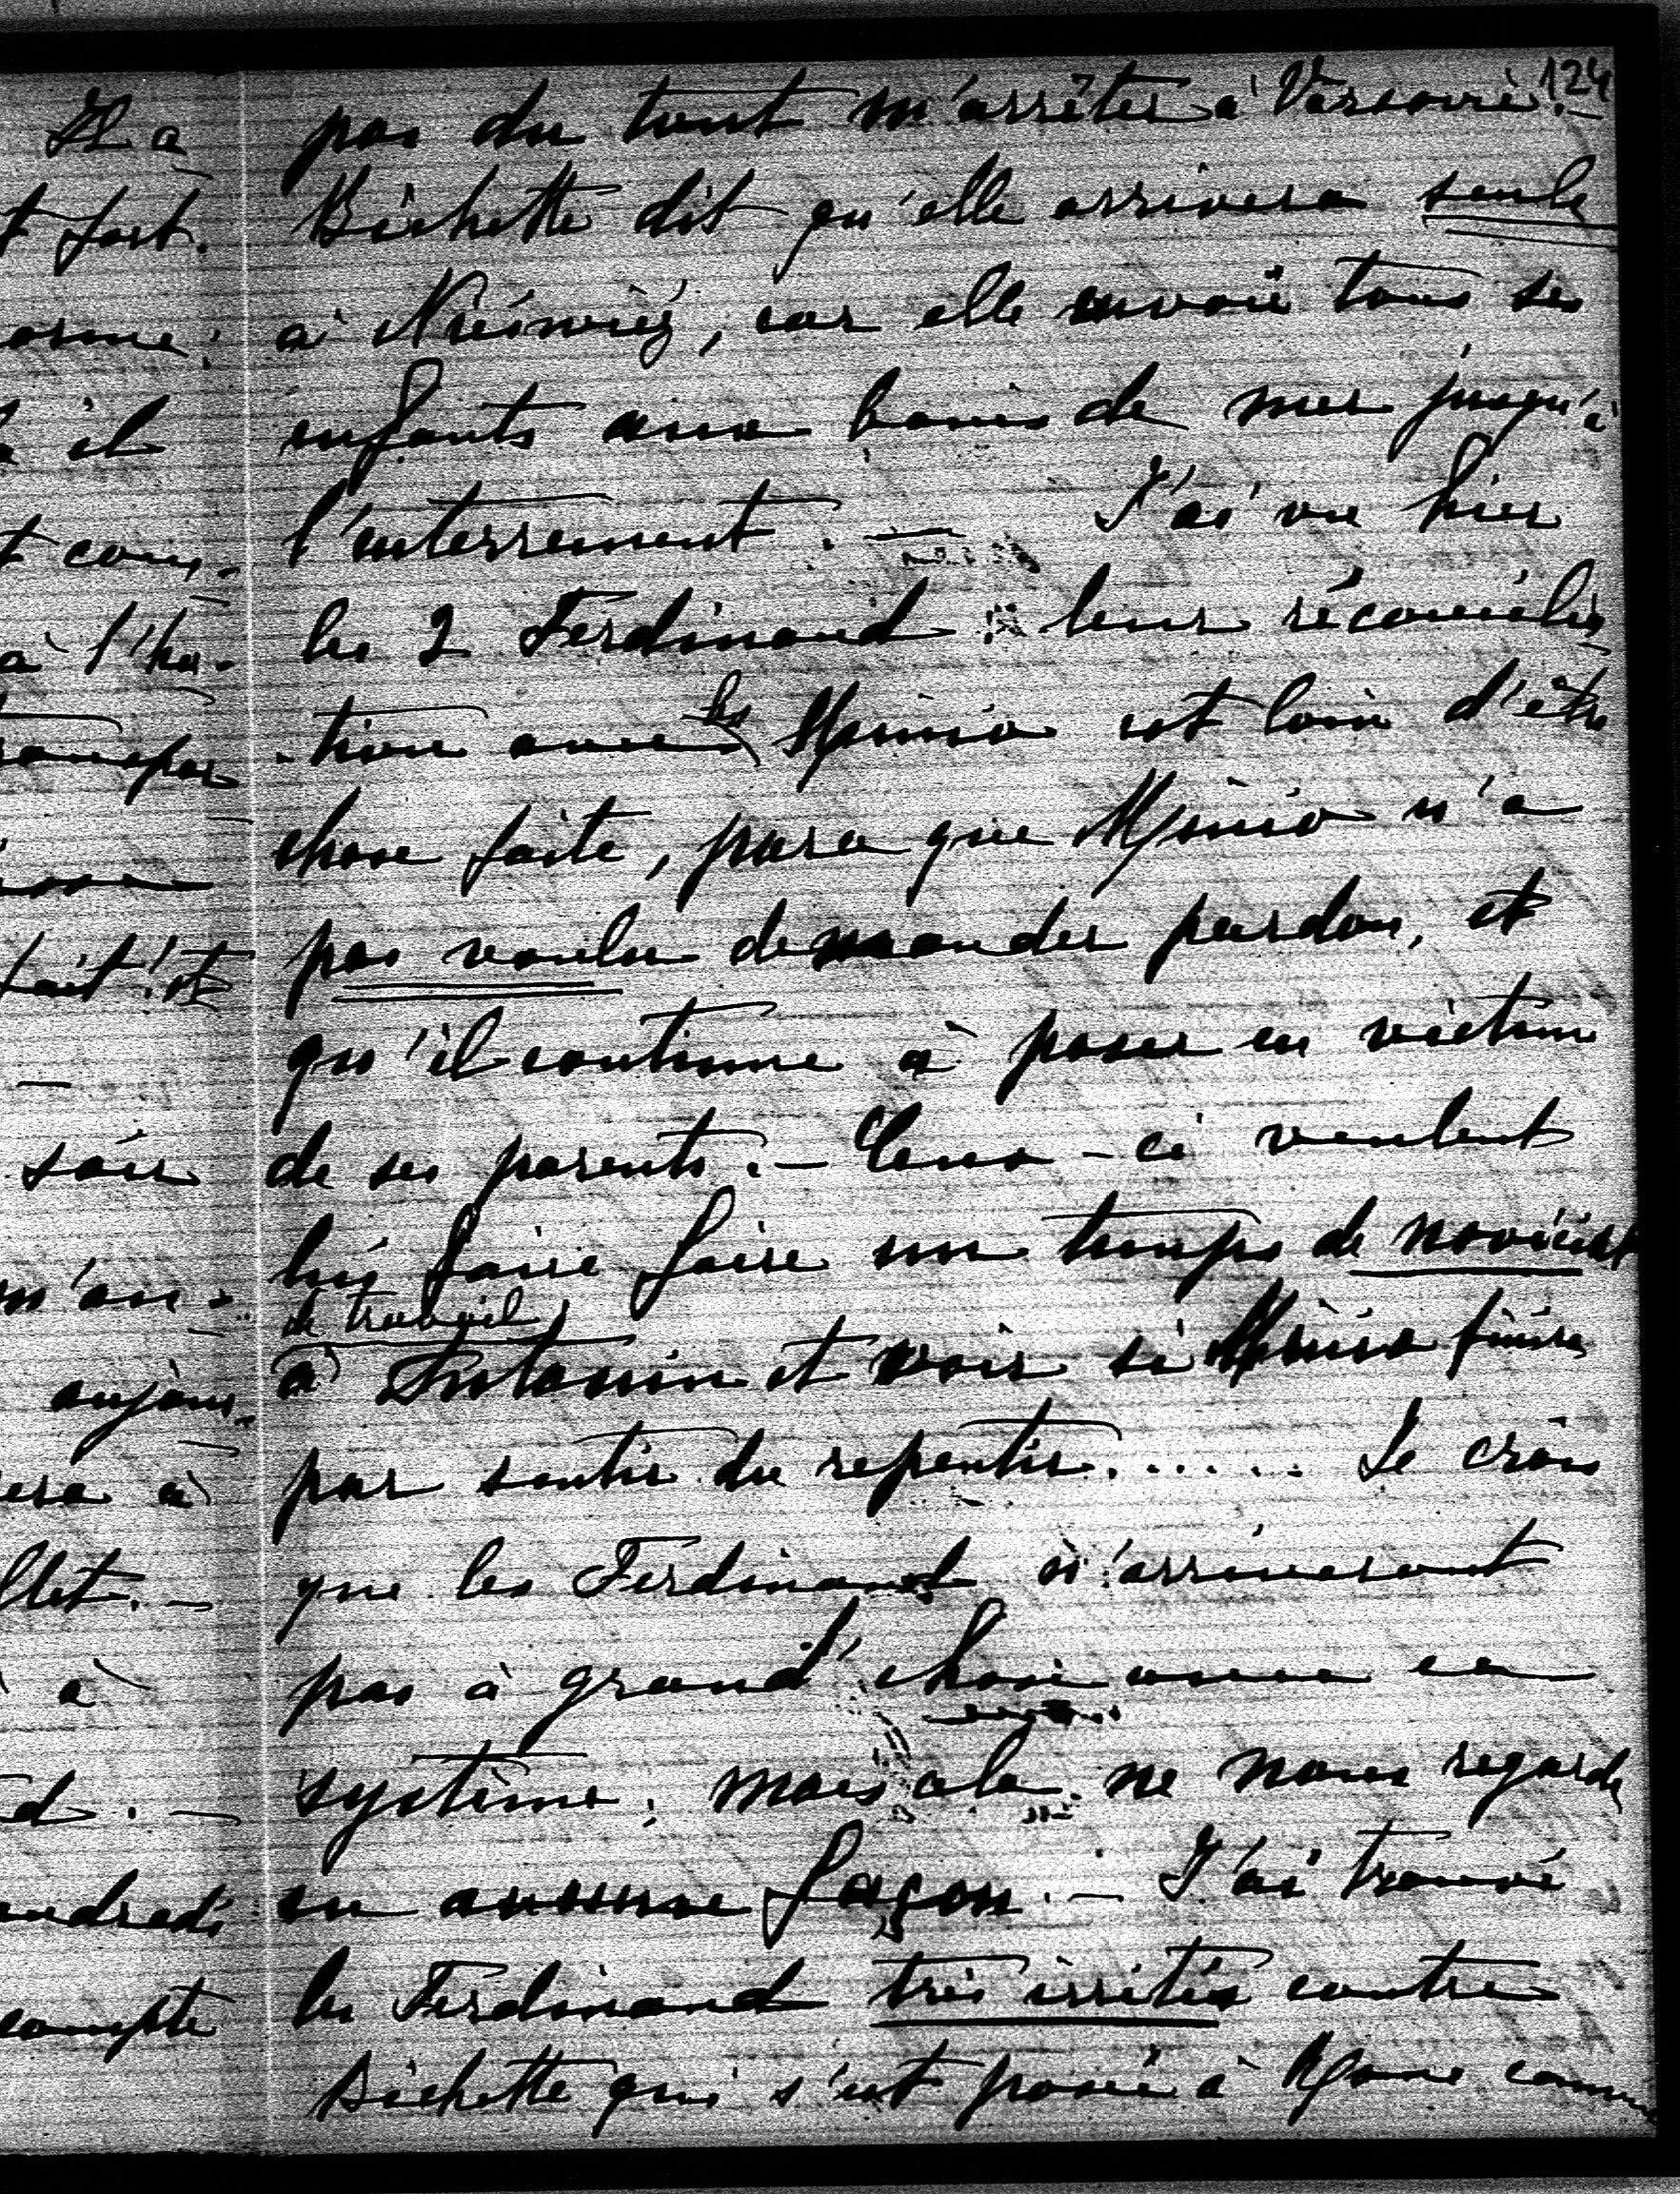 124
pas du tout m'arrêter à Varsovie. –
Bichette dit qu'elle arrivera seule
à Nieśwież, car elle envoie tous ses
enfants aux bains de mer jusqu'à
l'enterrement. – J'ai vu hier
les 2 Ferdinand : leur réconcilia
-tion avec les Mimio est loin d'être
chose faite, parce que Mimio n'a
pas voulu demander pardon, et
qu'il continue à poser en victime
de ses parents. – Ceux-ci veulent
lui faire faire un temps de noviciat
de travail
à Antonin et voir si Mimio finira
par sentir du repentir...... Je crois
que les Ferdinand n'arriveront
pas à grand'chose avec ce
système; mais cela ne nous regarde
en aucune façon. – J'ai trouvé
les Ferdinand très irrités contre
Bichette qui s'est posée à Rome comme
Il a
t fort.
orme;
il
t com-
à l'hô-
transpor
fait! et
–
soir
m'an-
aujour-
era à
llet. –
à
d. –
endredi
compte